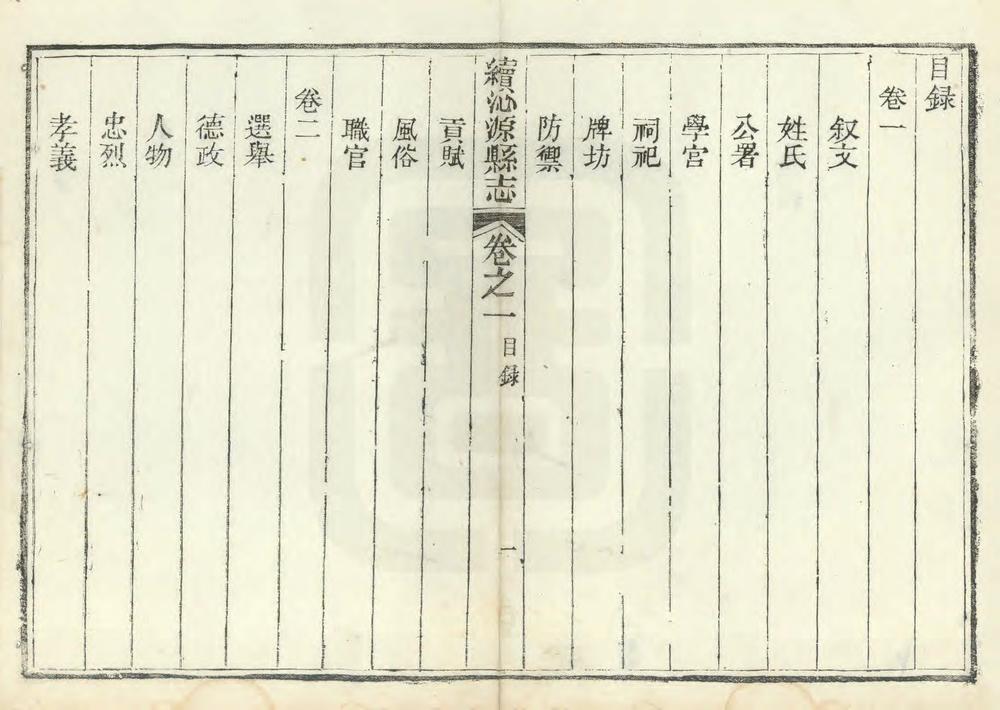 目録
卷一
叙文
姓氏
公署
學宫
祠祀
牌坊
防禦
續沁源縣志 卷之一 目録 一
貢賦
風俗
職官
卷二
選舉
德政
人物
忠烈
孝義